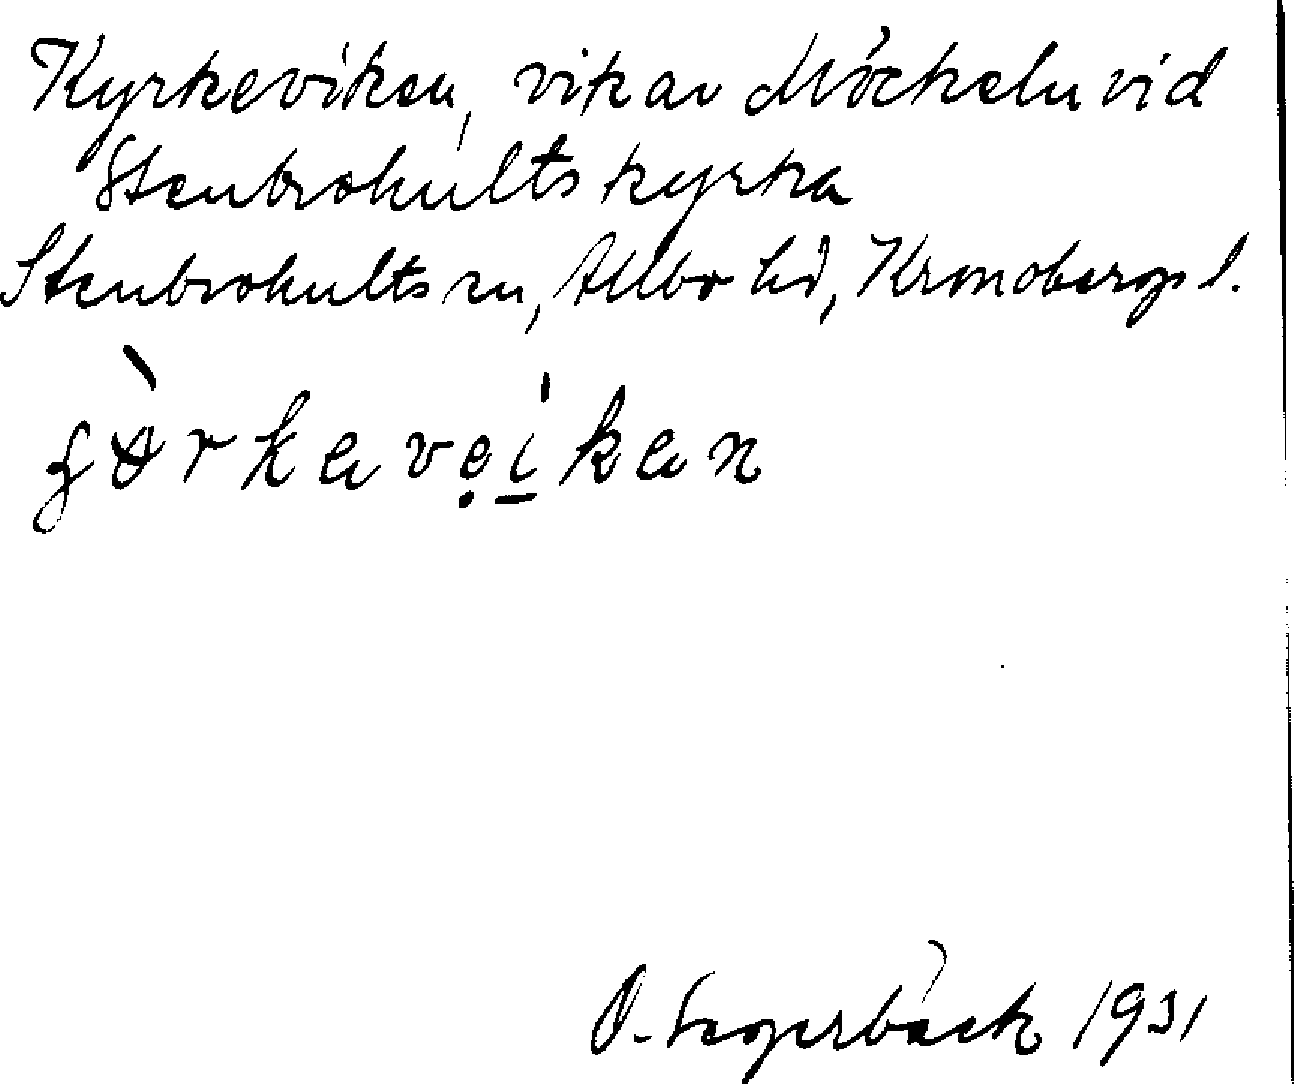 Kyrkeviken, vik av Möckeln vid
Stenbrohults kyrka
Stenbrohults sn, Allbo hd, Kronobergs l.
O. Segerbäck 1931